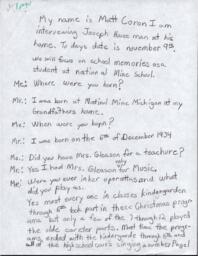 My name is Matt Coron I am
interviewing Joseph House man at his
home. To days date is november 9th.
We will focus on school memories as a
student at national Mine School.
Me: Where were you born?
Mr: I was born at National Mine Michigan at my
Grandfathers home.
Me: When were you born?
Mr: I was born on the 6th of December 1934
Me: Did you have Mrs. Gleason for a teachure?
Mr: Yes I had Mrs. Gleason for only Music.
Me: Were you ever in her operattas and what
did you play as.
Yes most every one in classes kindergarden
through 6th took part in these Christmas programs
but only a few of the 7 through 12 played
the older carater parts. Most the programs
ended with the kindergarden through 6th and
all of the high school cour's singing a